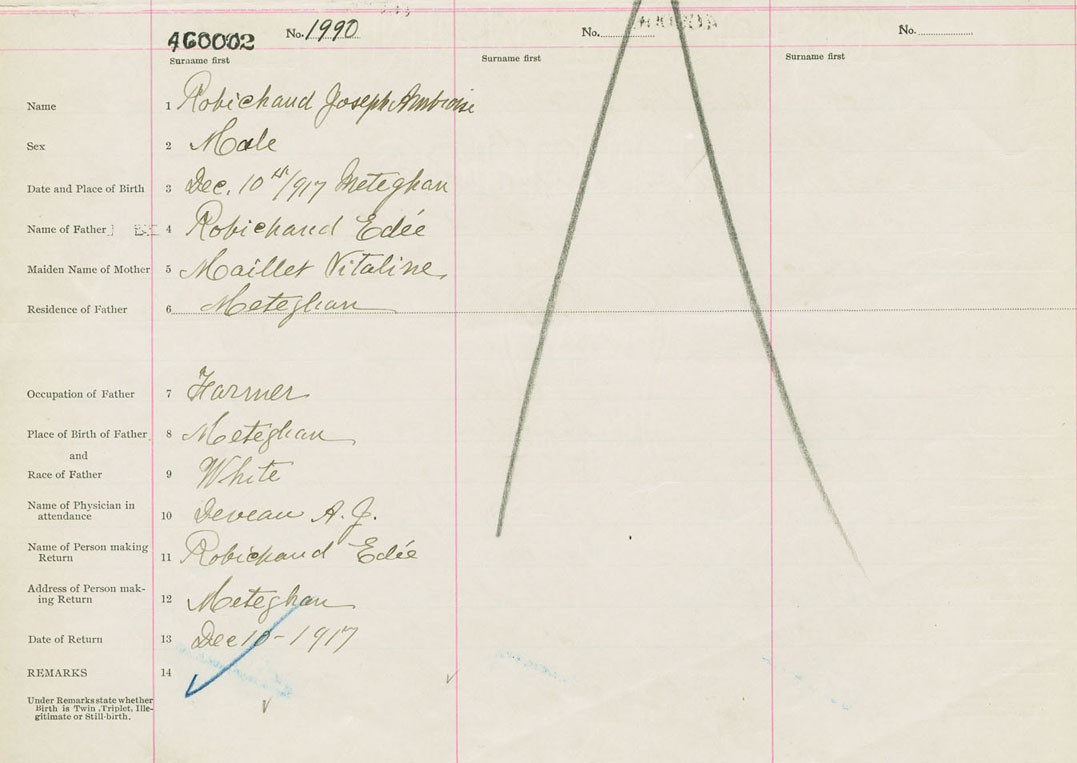 460002 No. 1990 No. No.
Surname first Surname first Surname first
Name 1 Robichaud Joseph Ambroise
Sex 2 Male
Date and Place of Birth 3 Dec. 10th/917 Meteghan
Name of Father 4 Robichaud Edée
Maiden Name of Mother 5 Maillet Vitaline
Residence of Father 6 Meteghan
Occupation of Father 7 Farmer
Place of Birth of Father 8 Meteghan
and
Race of Father 9 White
Name of Physician in
attendance 10 Deveau A. J.
Name of Person making
Return 11 Robichaud Edée
Address of Person mak-
ing Return 12 Meteghan
Date of Return 13 Dec 10-1917
REMARKS 14
Under Remarks state whether
Birth is Twin, Triplet, Ille-
gitimate or Still-birth.